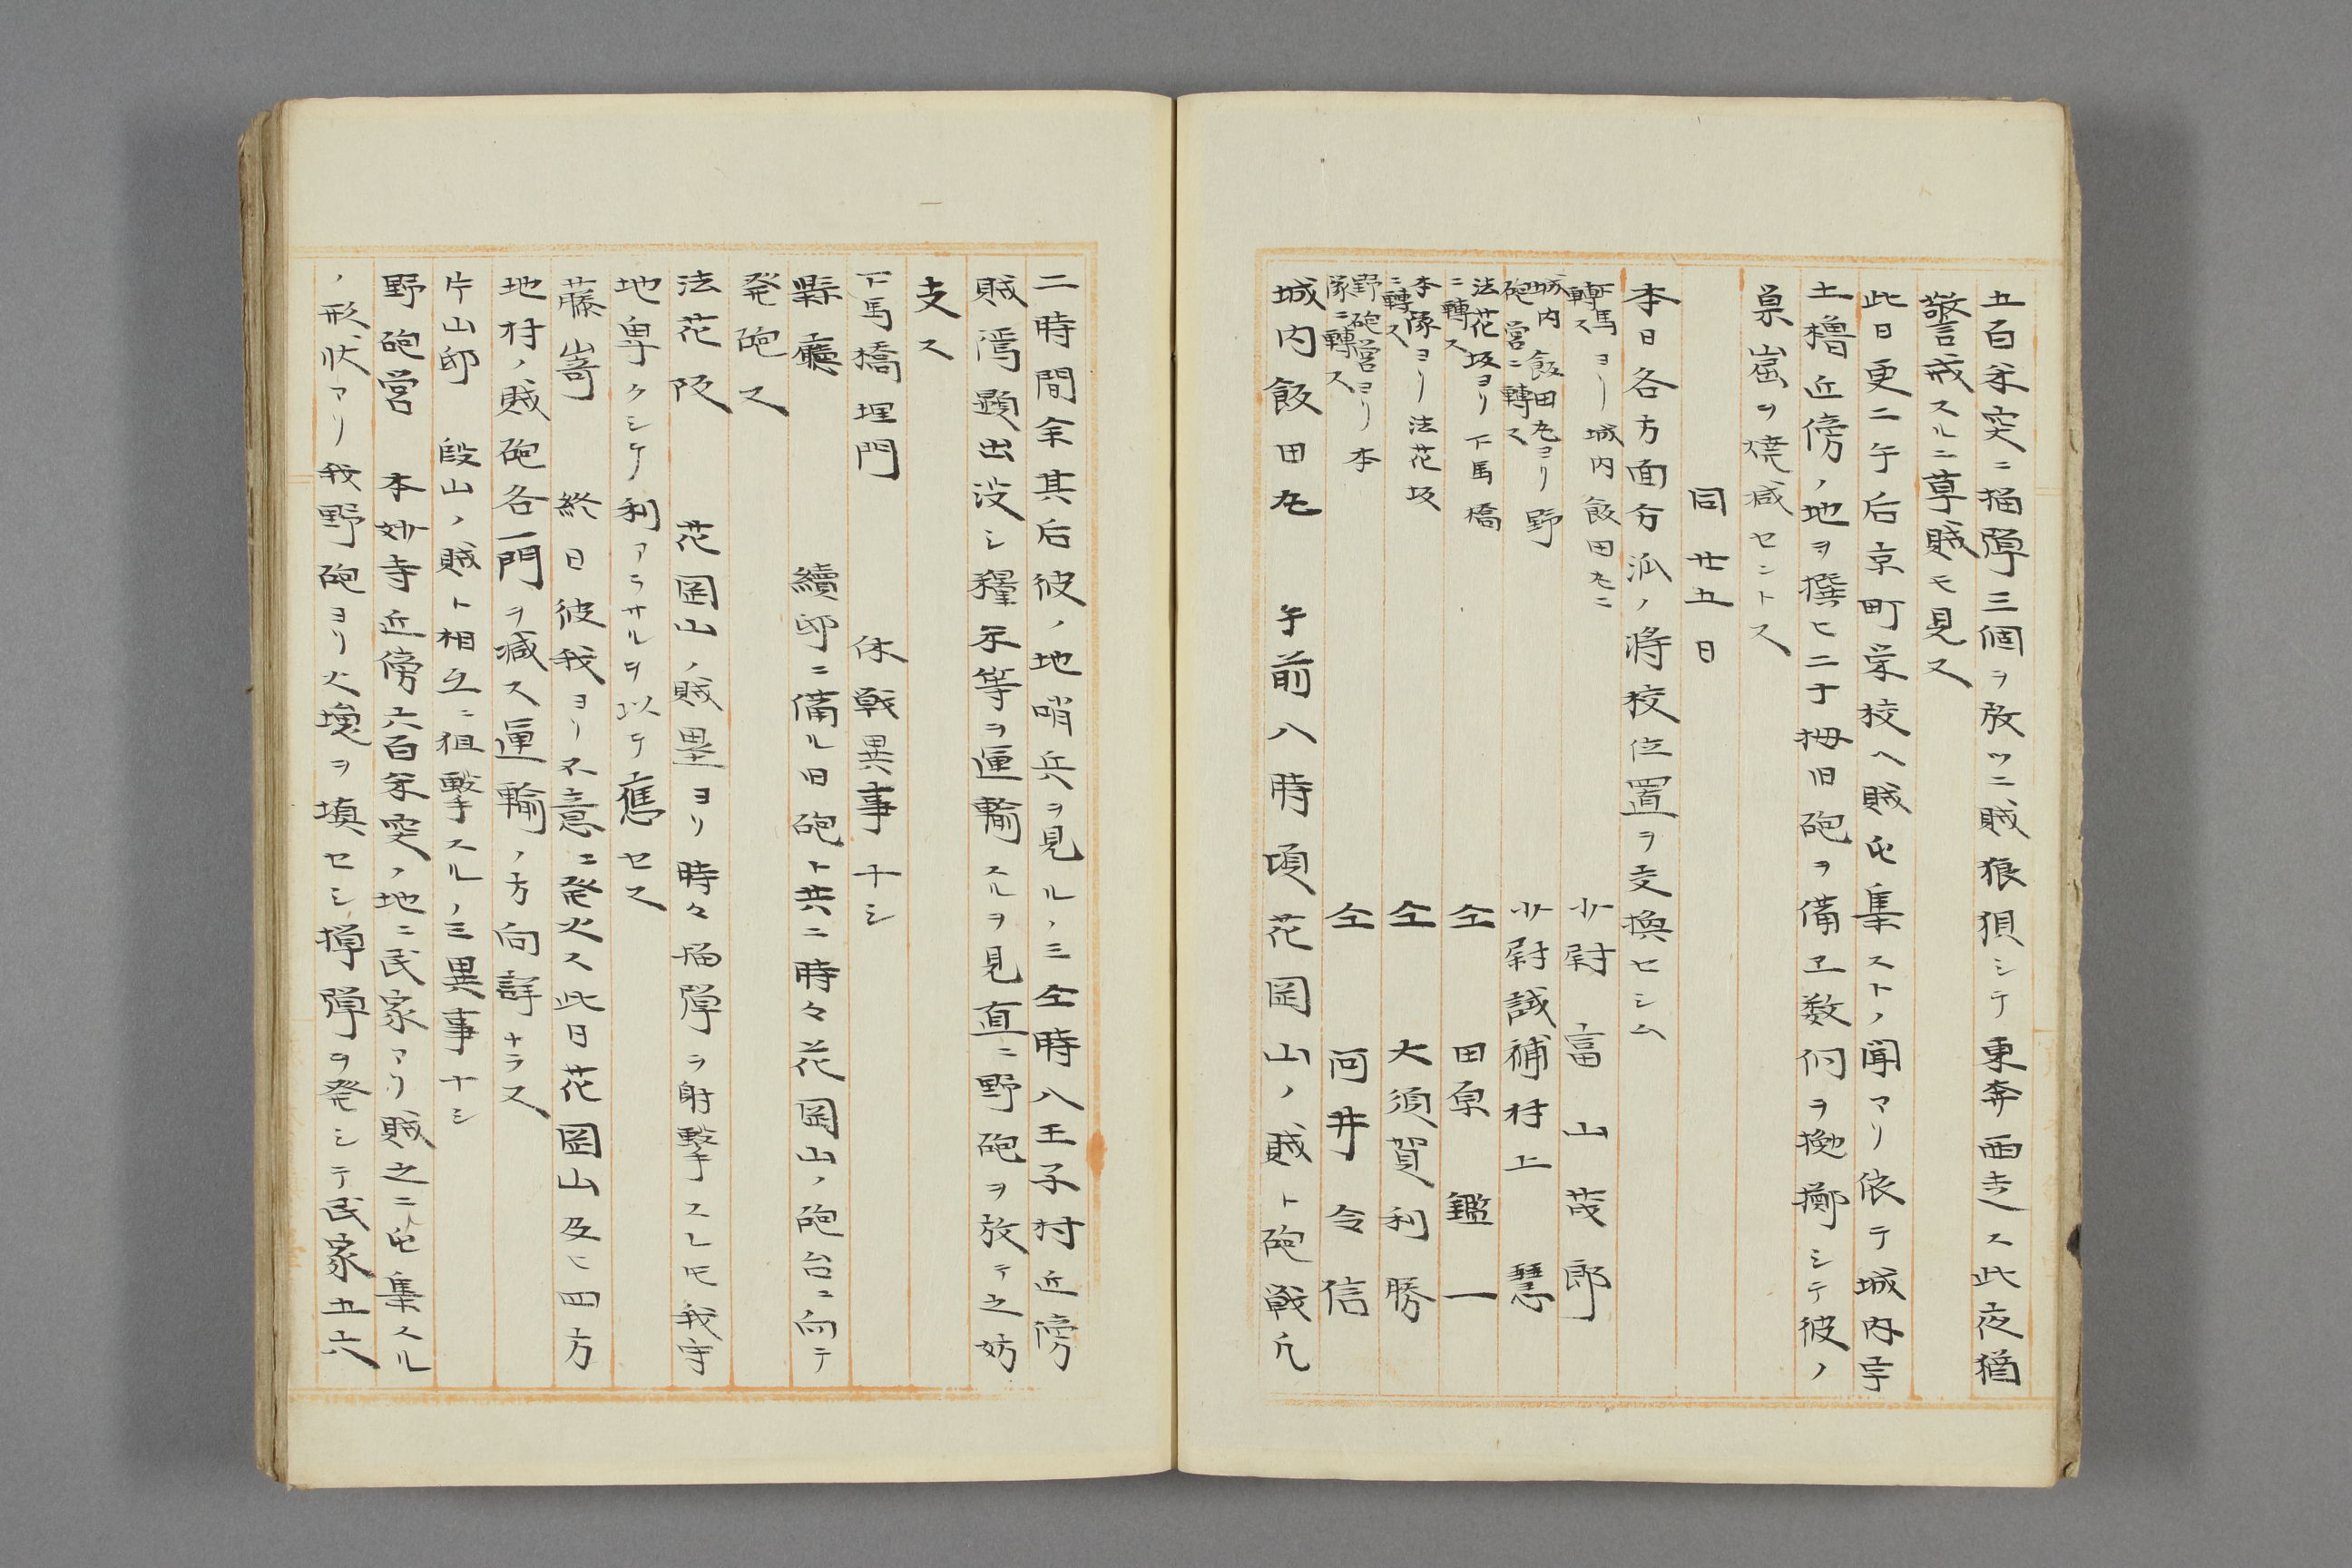 五百米突ニ榴弾三個ヲ放ツニ賊狼狽シテ東奔西走ス此夜猶
警戒スルニ草賊モ見ヘス
此日更ニ午后京町栄校ヘ賊屯集ストノ聞アリ依テ城内宇
土櫓近傍ノ地ヲ撰ヒ二十拇旧砲ヲ備ヱ数個ヲ抛擲シテ彼ノ
巣窟ヲ焼滅セントス
同廿五日
本日各方面分派ノ将校位置ヲ交換セシム
下馬ヨリ城内飯田丸ニ轉ス 少尉 富山茂郎
城内飯田丸ヨリ野砲営ニ轉ス 少尉試補村上慧
法花坂ヨリ下馬橋ニ轉ス 仝 田原鑑一
本隊ヨリ法花坂ニ轉ス 仝 大須賀利勝
野砲営ヨリ本隊ニ轉ス 仝 向井令信
城内飯田丸 午前八時頃花岡山ノ賊ト砲戦凡
二時間余其后彼ノ地哨兵ヲ見ルノミ仝時八王子村近傍
賊馮顕出没シ糧米等ヲ運輸スルヲ見直ニ野砲ヲ放テ之妨
支ス
下馬橋埋門 休戦異事ナシ
縣廳 續邸ニ備ル旧砲ト共ニ時々花岡山ノ砲台ニ向テ
発砲ス
法花阪 花岡山ノ賊塁ヨリ時々榴弾ヲ射撃スレ𪜈我守
地卑クシテ利アラサルヲ以テ應セス
藤嵜 終日彼我ヨリ不意ニ発火ス此日花岡山及ヒ四方
地村ノ賊砲各一門ヲ減ス運輸ノ方向詳ナラス
片山邸 段山ノ賊ト相互ニ狙撃スルノミ異事ナシ
野砲営 本妙寺近傍六百米突ノ地ニ民家アリ賊之ニ屯集スル
ノ形状アリ我野砲ヨリ火塊ヲ填セシ榴弾ヲ発シテ民家五六